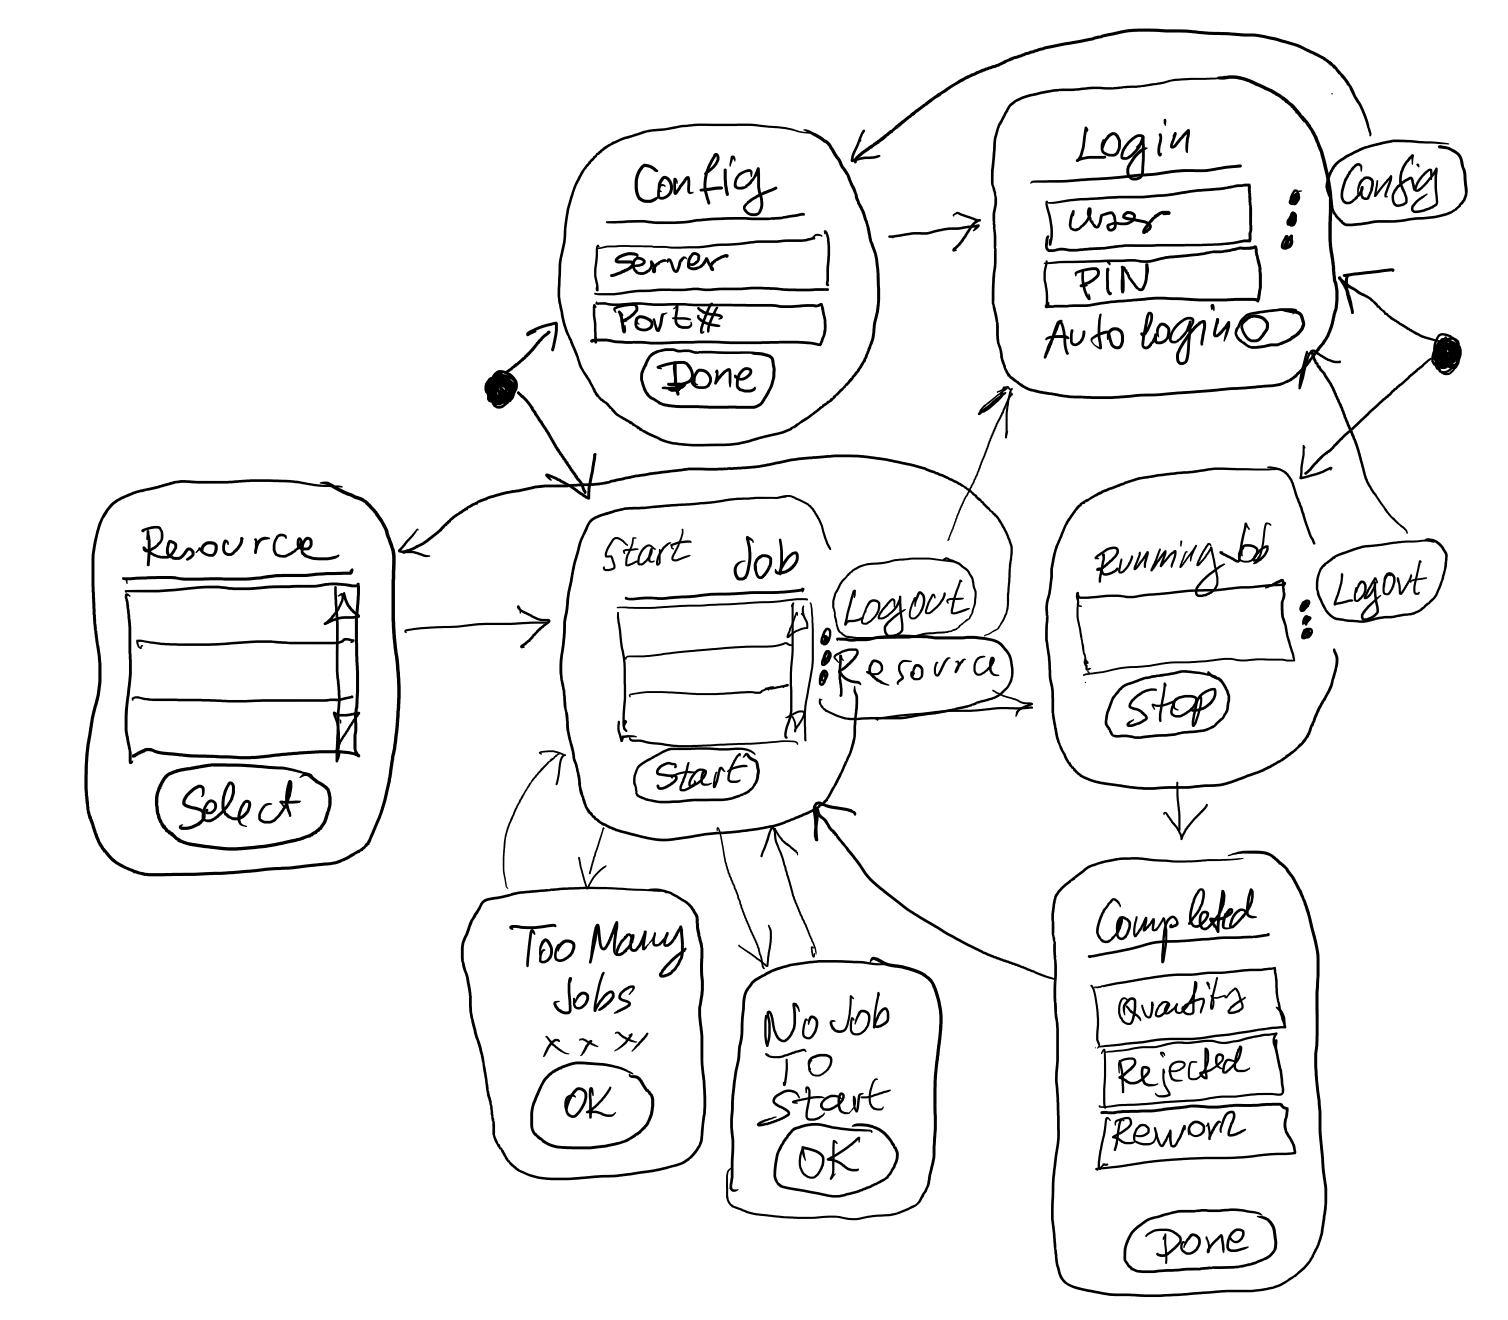 Config
Server
Port#
Done
Login
User
PIN
Auto login
Config
Resource
Select
Start Job
Logout
Resource
Start
Running Job
Logout
Stop
Too Many
Jobs
x x x
OK
No Job
To
Start
OK
Completed
Quantity
Rejected
Rework
Done